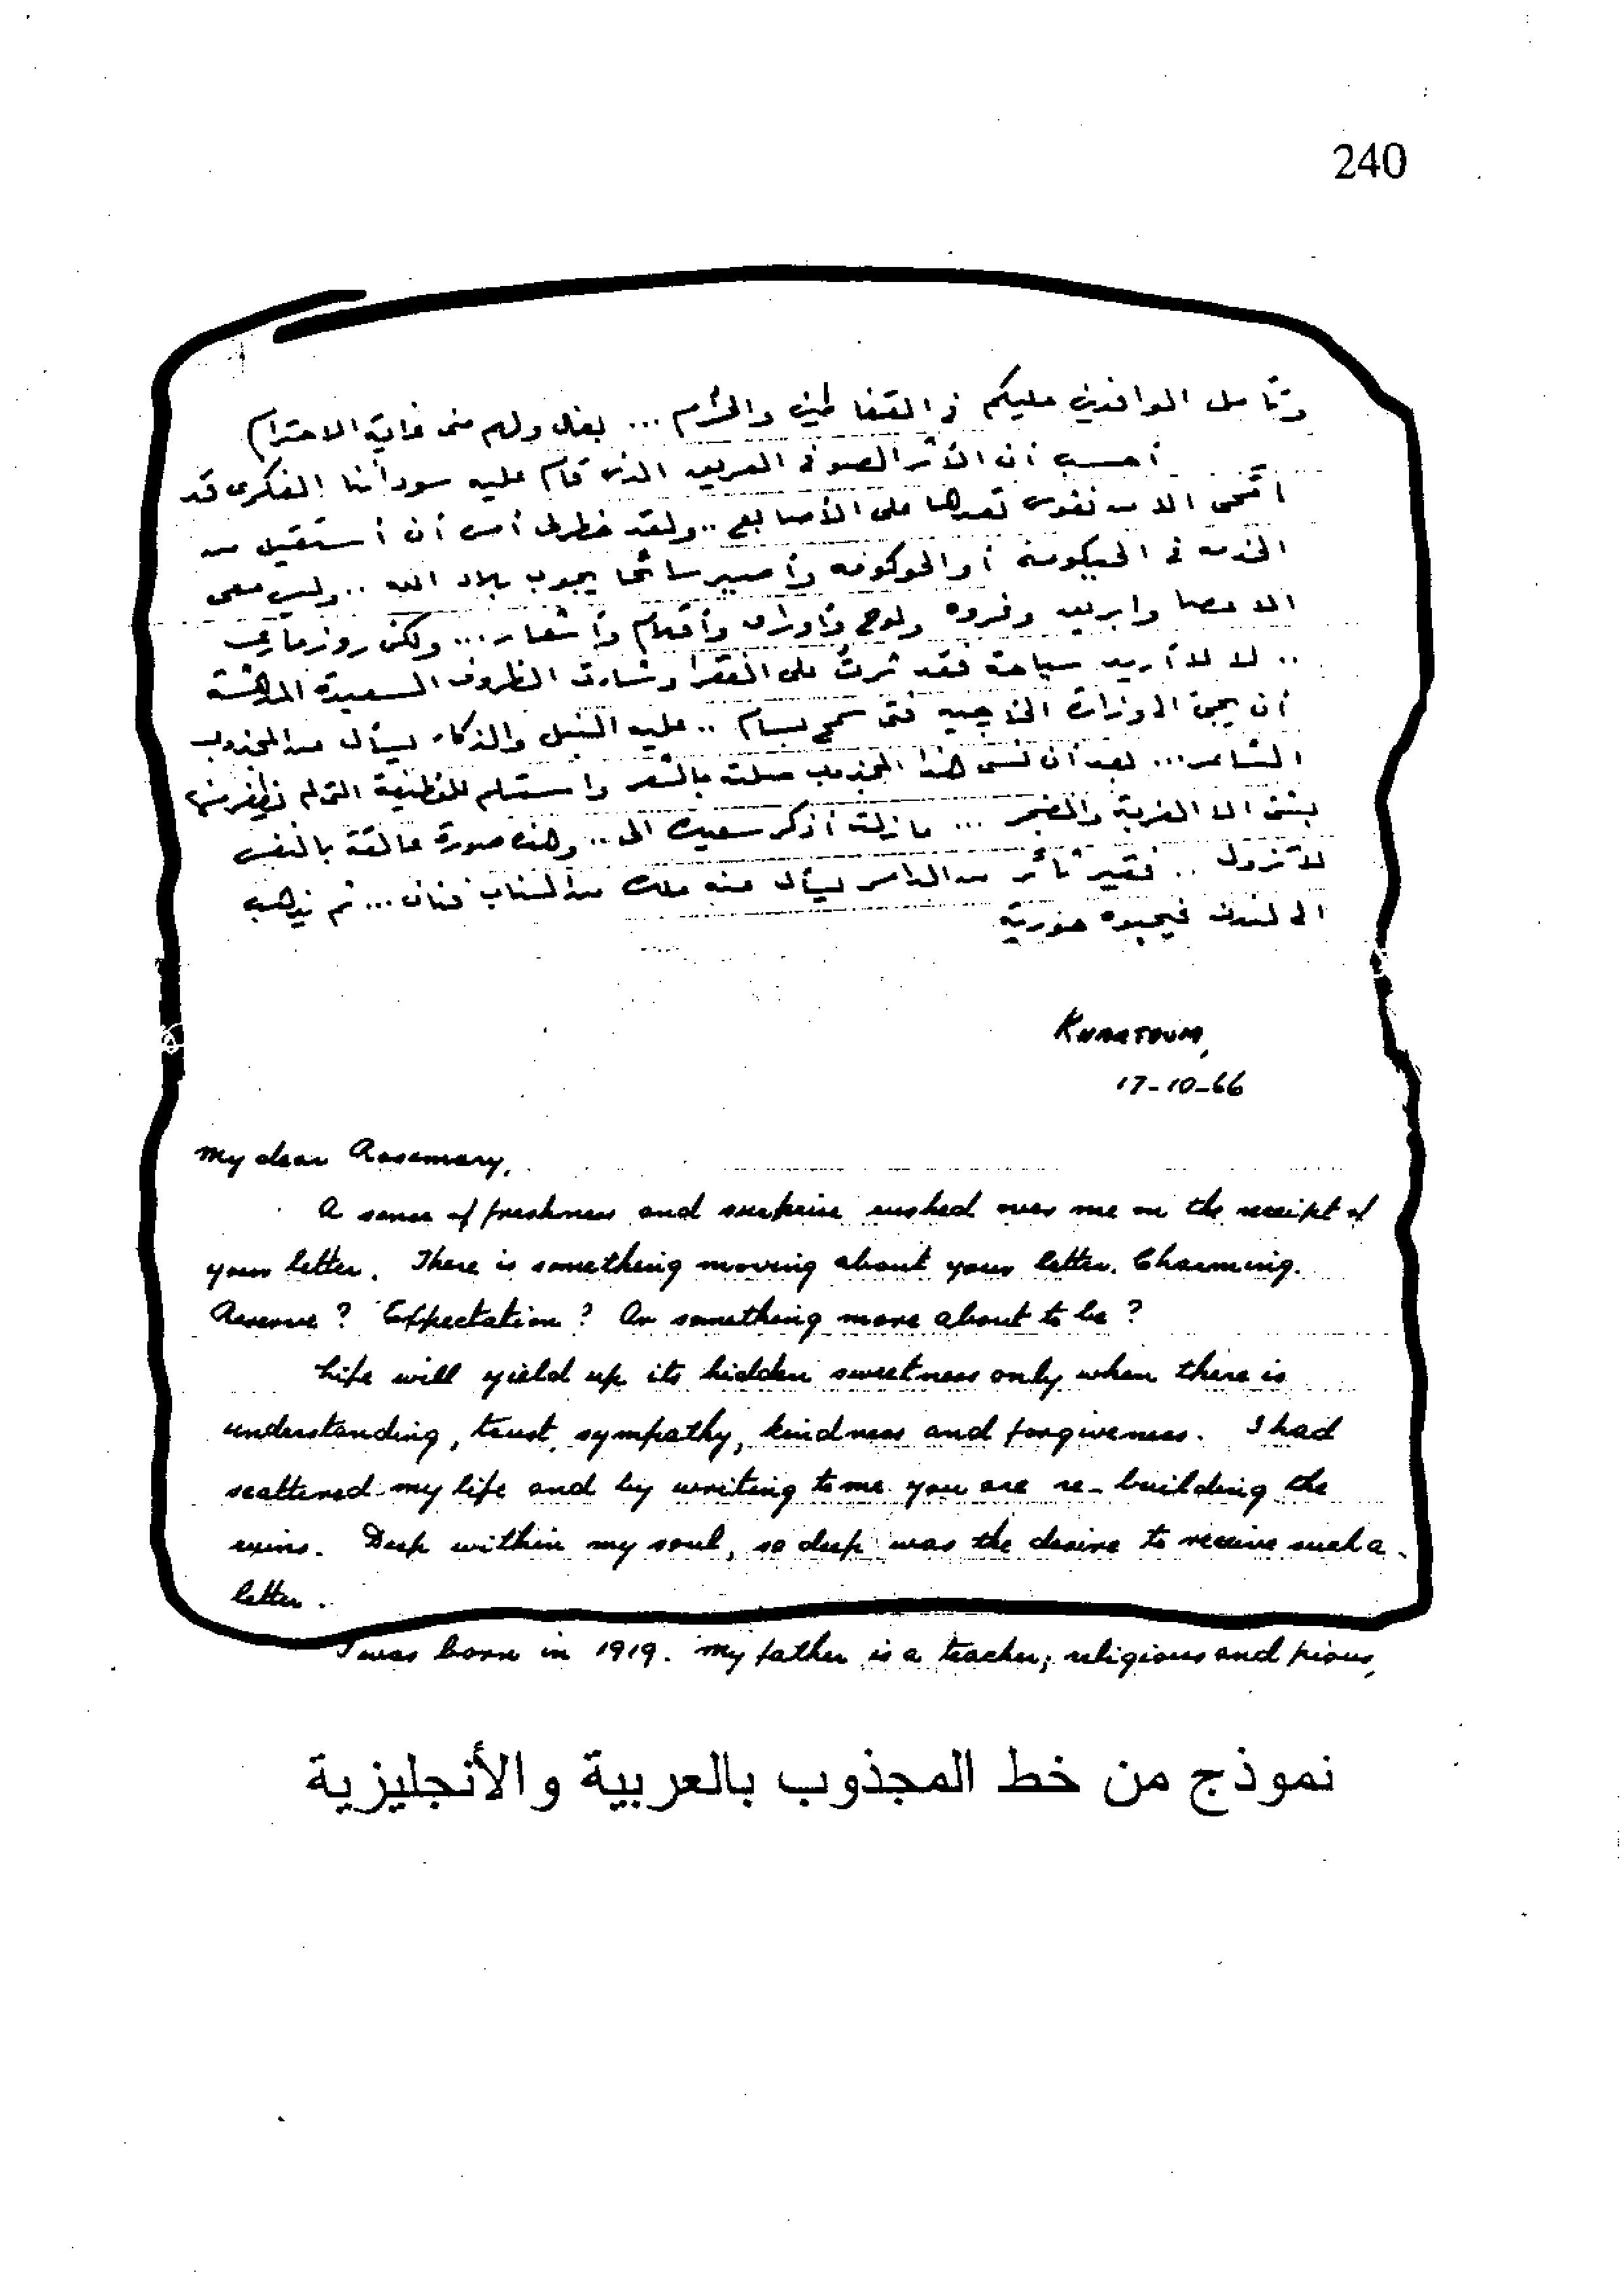 240
وتأمل الوافدين عليكم في القفاطين والحُزُم ... بغال ولهم منى غاية الاحترام
أحسب أن الأثر الصوفى العريق الذى قام عليه سوداننا الفكرى قد
امّحى الا من نفوس تعدها على الأصابع .. ولقد خطر لى أمس أن أستقيل من
الخدمه فى الحيكومة أو الحوكومه وأصير سائحا يجوب بلاد الله .. وليس معى
الا عصا وابريق وفروه ولوح وأوراق وأقلام وأشعار ... ولكن روزمارى
.. لا لا أريد سياحة فقد ثرت على الفقرا وشاءت الظروف السعيدة المدهشة
أن يجئ الى وزارة الخارجيه فتى سمح بسام .. عليه النبل والذكاء يسأل عن المجذوب
الشاعر ... بعد أن نسى هذا المجذوب صلته بالشعر واستسلم للوظيفة التى لم نظفر منها
بشئ الا الغربة والضجر ... ما زلت أذكر سعيك الى .. وهذه صورة عالقة بالنفس
لا تزول .. فقير ثائر من الدامر يسأل عنه ملك من السناب فنان ... ثم يذهب
الى لندن فيجيبوه حورية
KHARTOUM,
17-10-66
My dear Rosemary,
A sense of freshness and surprise rushed over me on the receipt of
your letter. There is something moving about your letter. Charming.
Reserve? Expectation? Or something more about to be?
Life will yield up its hidden sweetness only when there is
understanding, trust, sympathy, kindness and forgiveness. I had
scattered my life and by writing to me you are re-building the
ruins. Deep within my soul, so deep was the desire to receive such a
letter.
I was born in 1919. My father is a teacher; religious and pious,
نموذج من خط المجذوب بالعربية والأنجليزية